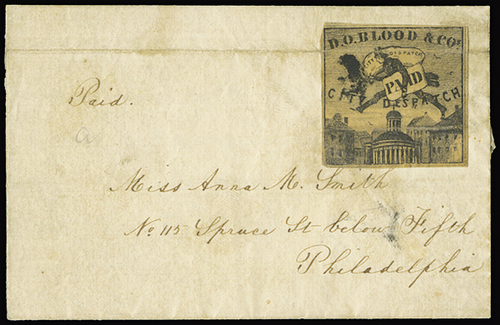 D.O.BLOOD & COS
CITY DESPATCH
PAID
CITY DESPATCH
Paid.
Miss Anna M. Smith
No 115 Spruce St below Fifth
Philadelphia